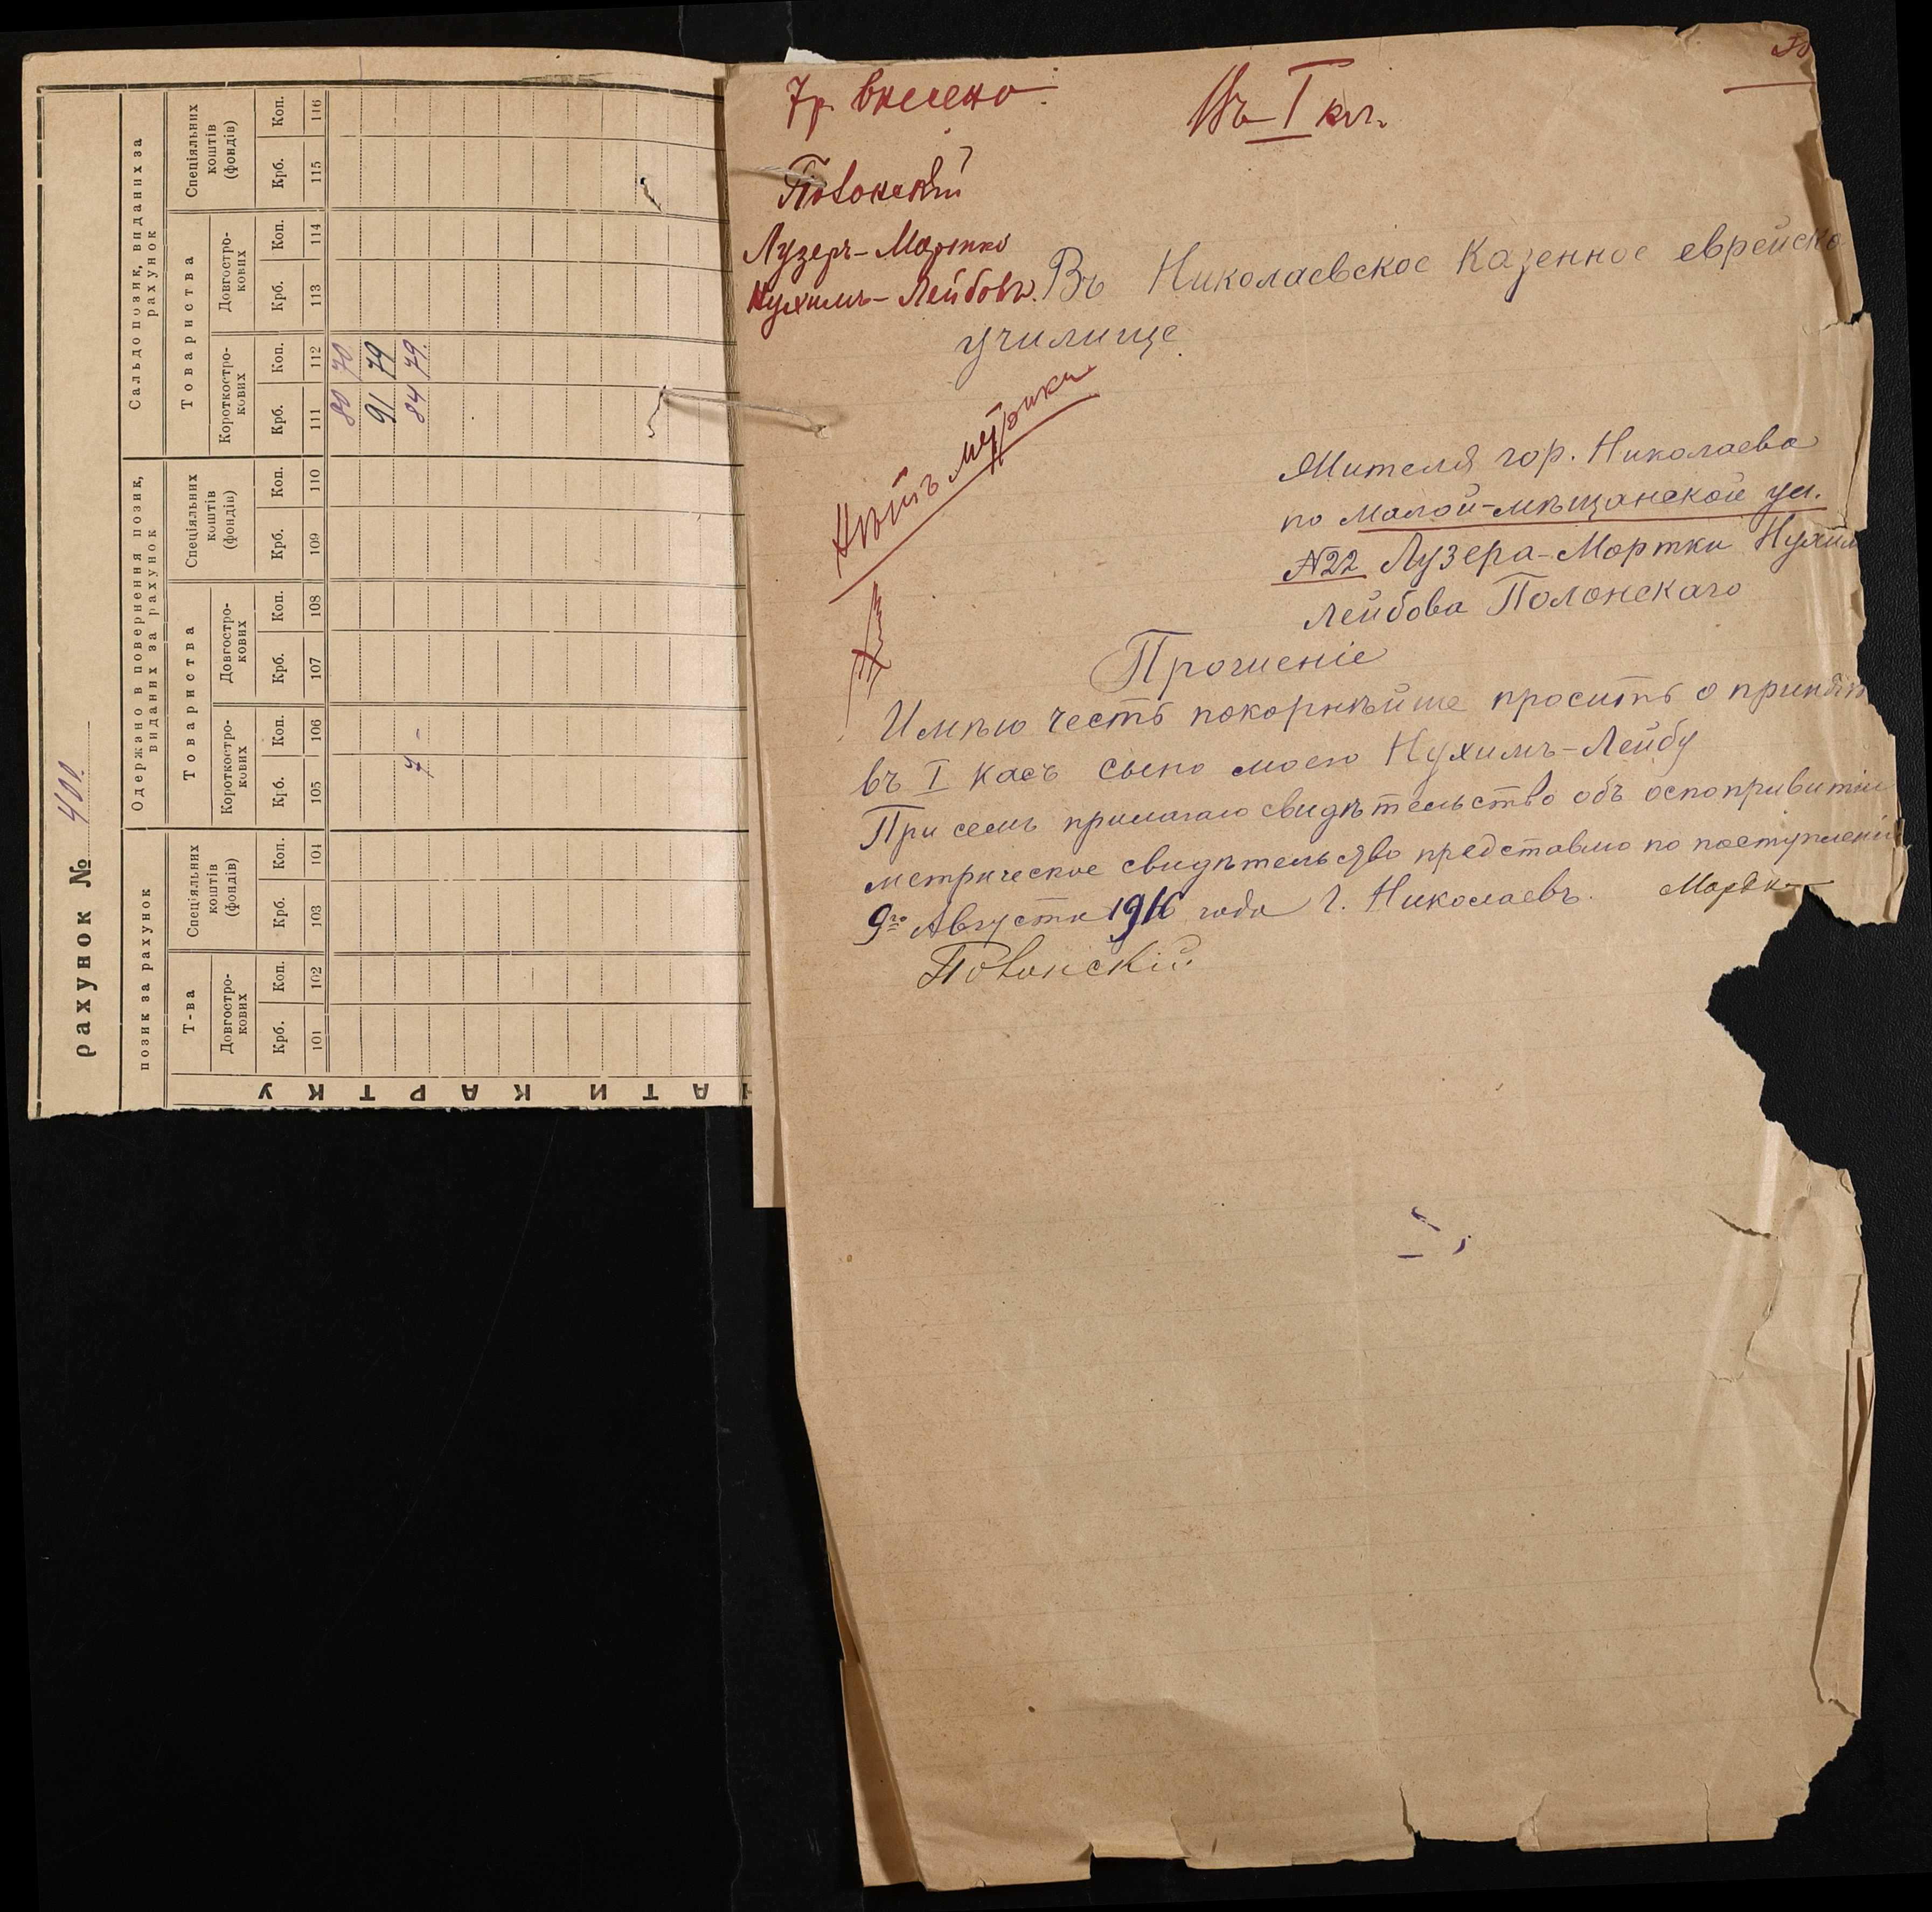 рахунок № 400
позик за рахунок
Одержано в повернення позик, виданих за рахунок
Сальдо позик, виданих за рахунок
Т-ва
Спеціяльних коштів (фондів)
Товариства
Спеціяльних коштів (фондів)
Товариства
Спеціяльних коштів (фондів)
Довгостро-кових
Короткостро-кових
Довгостро-кових
Короткостро-кових
Довгостро-кових
Крб. Коп. Крб. Коп. Крб. Коп. Крб. Коп. Крб. Коп. Крб. Коп. Крб. Коп. Крб. Коп.
101 102 103 104 105 106 107 108 109 110 111 112 113 114 115 116
80 70
91 79
7 - 84 79
АТИ КАРТКУ
30
7р. внесено
Въ I кл.
Полонскій
Лузеръ-Мортко
Нухимъ-Лейбовъ.
Въ Николаевское Казенное еврейско
училище
Нѣтъ метрики
Жителя гор. Николаева
по Малой-мѣщанской ул.
№22 Лузера-Мортки Нухим
Лейбова Полонскаго
Прошеніе
Имѣю честь покорнѣйше просить о принятіи
въ I касъ сына моего Нухимъ-Лейбу
При семъ прилагаю свидѣтельство объ оспопривитіи
метрическое свидѣтельство представлю по поступленіи
9го Августа 1916 года Г. Николаевъ. Мордко
Полонскій